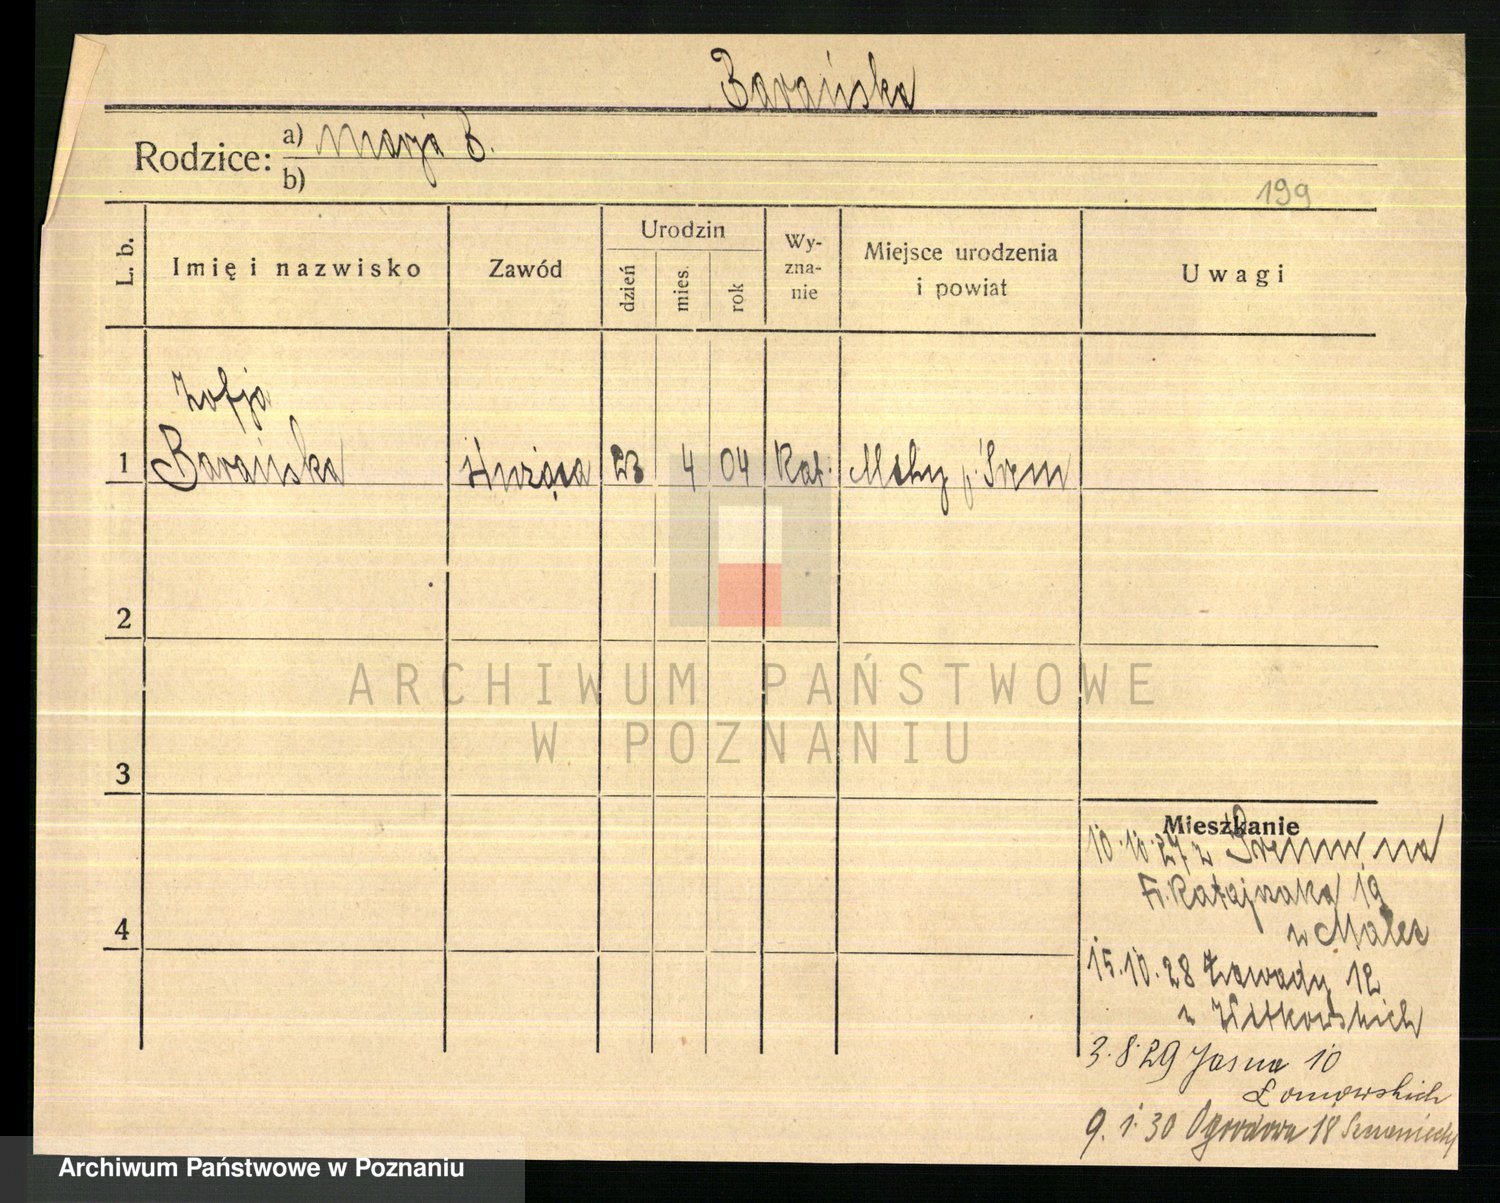 Barańska
Rodzice: a) Marja B.
b)
199
L. b.
Imię i nazwisko
Zawód
Urodzin
dzień
mies.
rok
Wy-
zna-
nie
Miejsce urodzenia
i powiat
Uwagi
Zofja
1 Barańska Służąca 23 4 04 Kat. Mchy p. Śrem
2
3
4
Mieszkanie
10.10.27 z Śremu na
Fr. Ratajczaka 19
u Malec
15.10.28 Zawady 12
u Witkowskich
3.8.29 Jasna 10
Łomowskich
9.1.30 Ogrodowa 18
ARCHIWUM PAŃSTWOWE
W POZNANIU
Archiwum Państwowe w Poznaniu